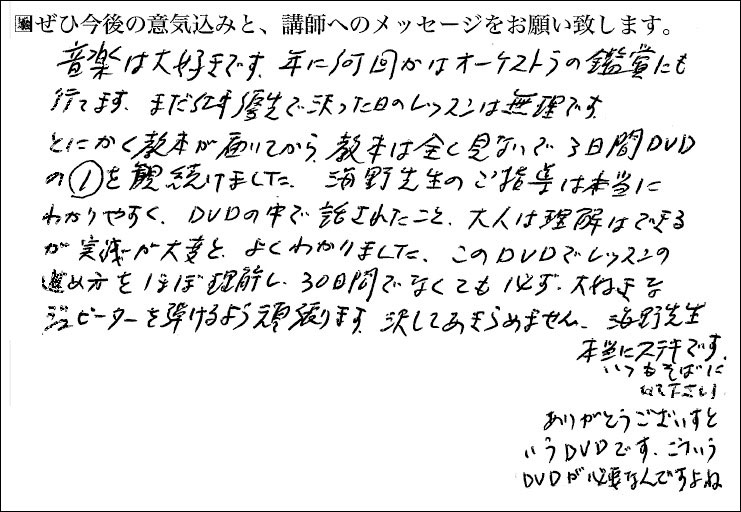 ぜひ今後の意気込みと、講師へのメッセージをお願い致します。
音楽は大好きです。年に何回かはオーケストラの鑑賞にも
行てます。まだ仕事優先で決った日のレッスンは無理です。
とにかく教本が届いてから、教本は全く見ないで3日間DVD
の①を観続けました。海野先生のご指導は本当に
わかりやすく、DVDの中で話されたこと、大人は理解はできる
が実践が大変と、よくわかりました。このDVDでレッスンの
進め方をほぼ理解し、30日間でなくても必ず、大好きな
ジュピターを弾けるよう頑張ります。決してあきらめません。海野先生
本当にステキです。
いつもそばに
ありがとうございすと
いうDVDです。こういう
DVDが必要なんですよね